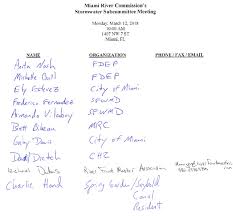 Miami River Commission's
Stormwater Subcommittee Meeting
Monday, March 12, 2018
10:00 AM
1407 NW 7 ST
Miami, FL
NAME ORGANIZATION PHONE / FAX / EMAIL
Anita Nash FDEP
Michelle FDEP
Ely Estevez City of Miami
Federico Fernandez SFWMD
Armando Vilaboy SFWMD
Brett Bibeau MRC
City of Miami
David CH2
River Front Master Association
Charlie Spring Garden/Seybold
Canal
Resident